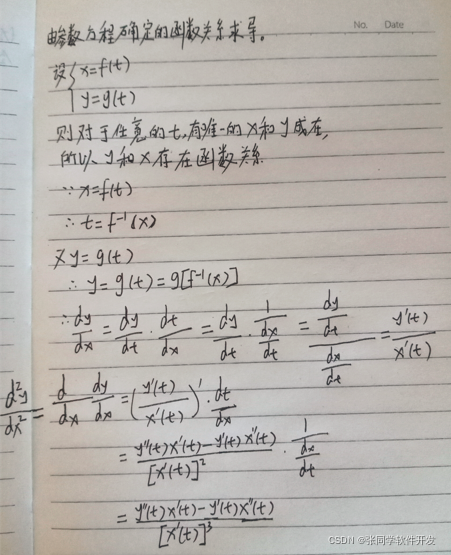 No. Date
由参数方程确定的函数关系求导。
设{x=f(t)
y=g(t)
则对于任意的t,有唯一的x和y成在,
所以y和x存在函数关系
∵x=f(t)
∴t=f⁻¹(x)
又y=g(t)
∴y=g(t)=g[f⁻¹(x)]
∴dy/dx=dy/dt·dt/dx=dy/dt·1/(dx/dt)=(dy/dt)/(dx/dt)=y'(t)/x'(t)
d²y/dx²=d/dx dy/dx=(y'(t)/x'(t))'·dt/dx
=(y''(t)x'(t)-y'(t)x''(t))/[x'(t)]²·1/(dx/dt)
=(y''(t)x'(t)-y'(t)x''(t))/[x'(t)]³
CSDN @张同学软件开发